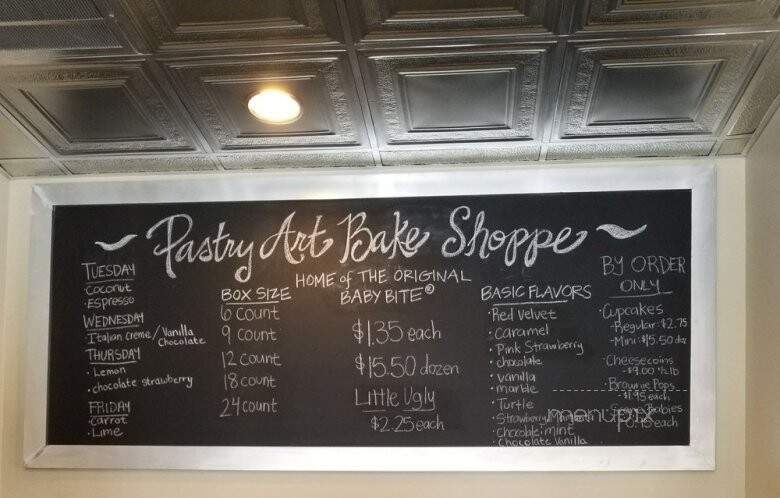 Pastry Art Bake Shoppe
HOME of THE ORIGINAL
BABY BITE®
TUESDAY
· Coconut
· Espresso
WEDNESDAY
Italian creme / Vanilla
Chocolate
THURSDAY
· Lemon
· chocolate strawberry
FRIDAY
· Carrot
· Lime
BOX SIZE
6 count
9 count
12 count
18 count
24 count
$1.35 each
$15.50 dozen
Little Ugly
$2.25 each
BASIC FLAVORS
· Red Velvet
· Caramel
· Pink Strawberry
· chocolate
· vanilla
· marble
· Turtle
· Strawberry
· Chocolate mint
· Chocolate Vanilla
BY ORDER
ONLY
· Cupcakes
- Regular: $2.75
- Mini: $15.50 doz
· Cheesecoins
- $9.00 ½ lb
· Brownie Pops
- $1.95 each
Babies
each
menupix